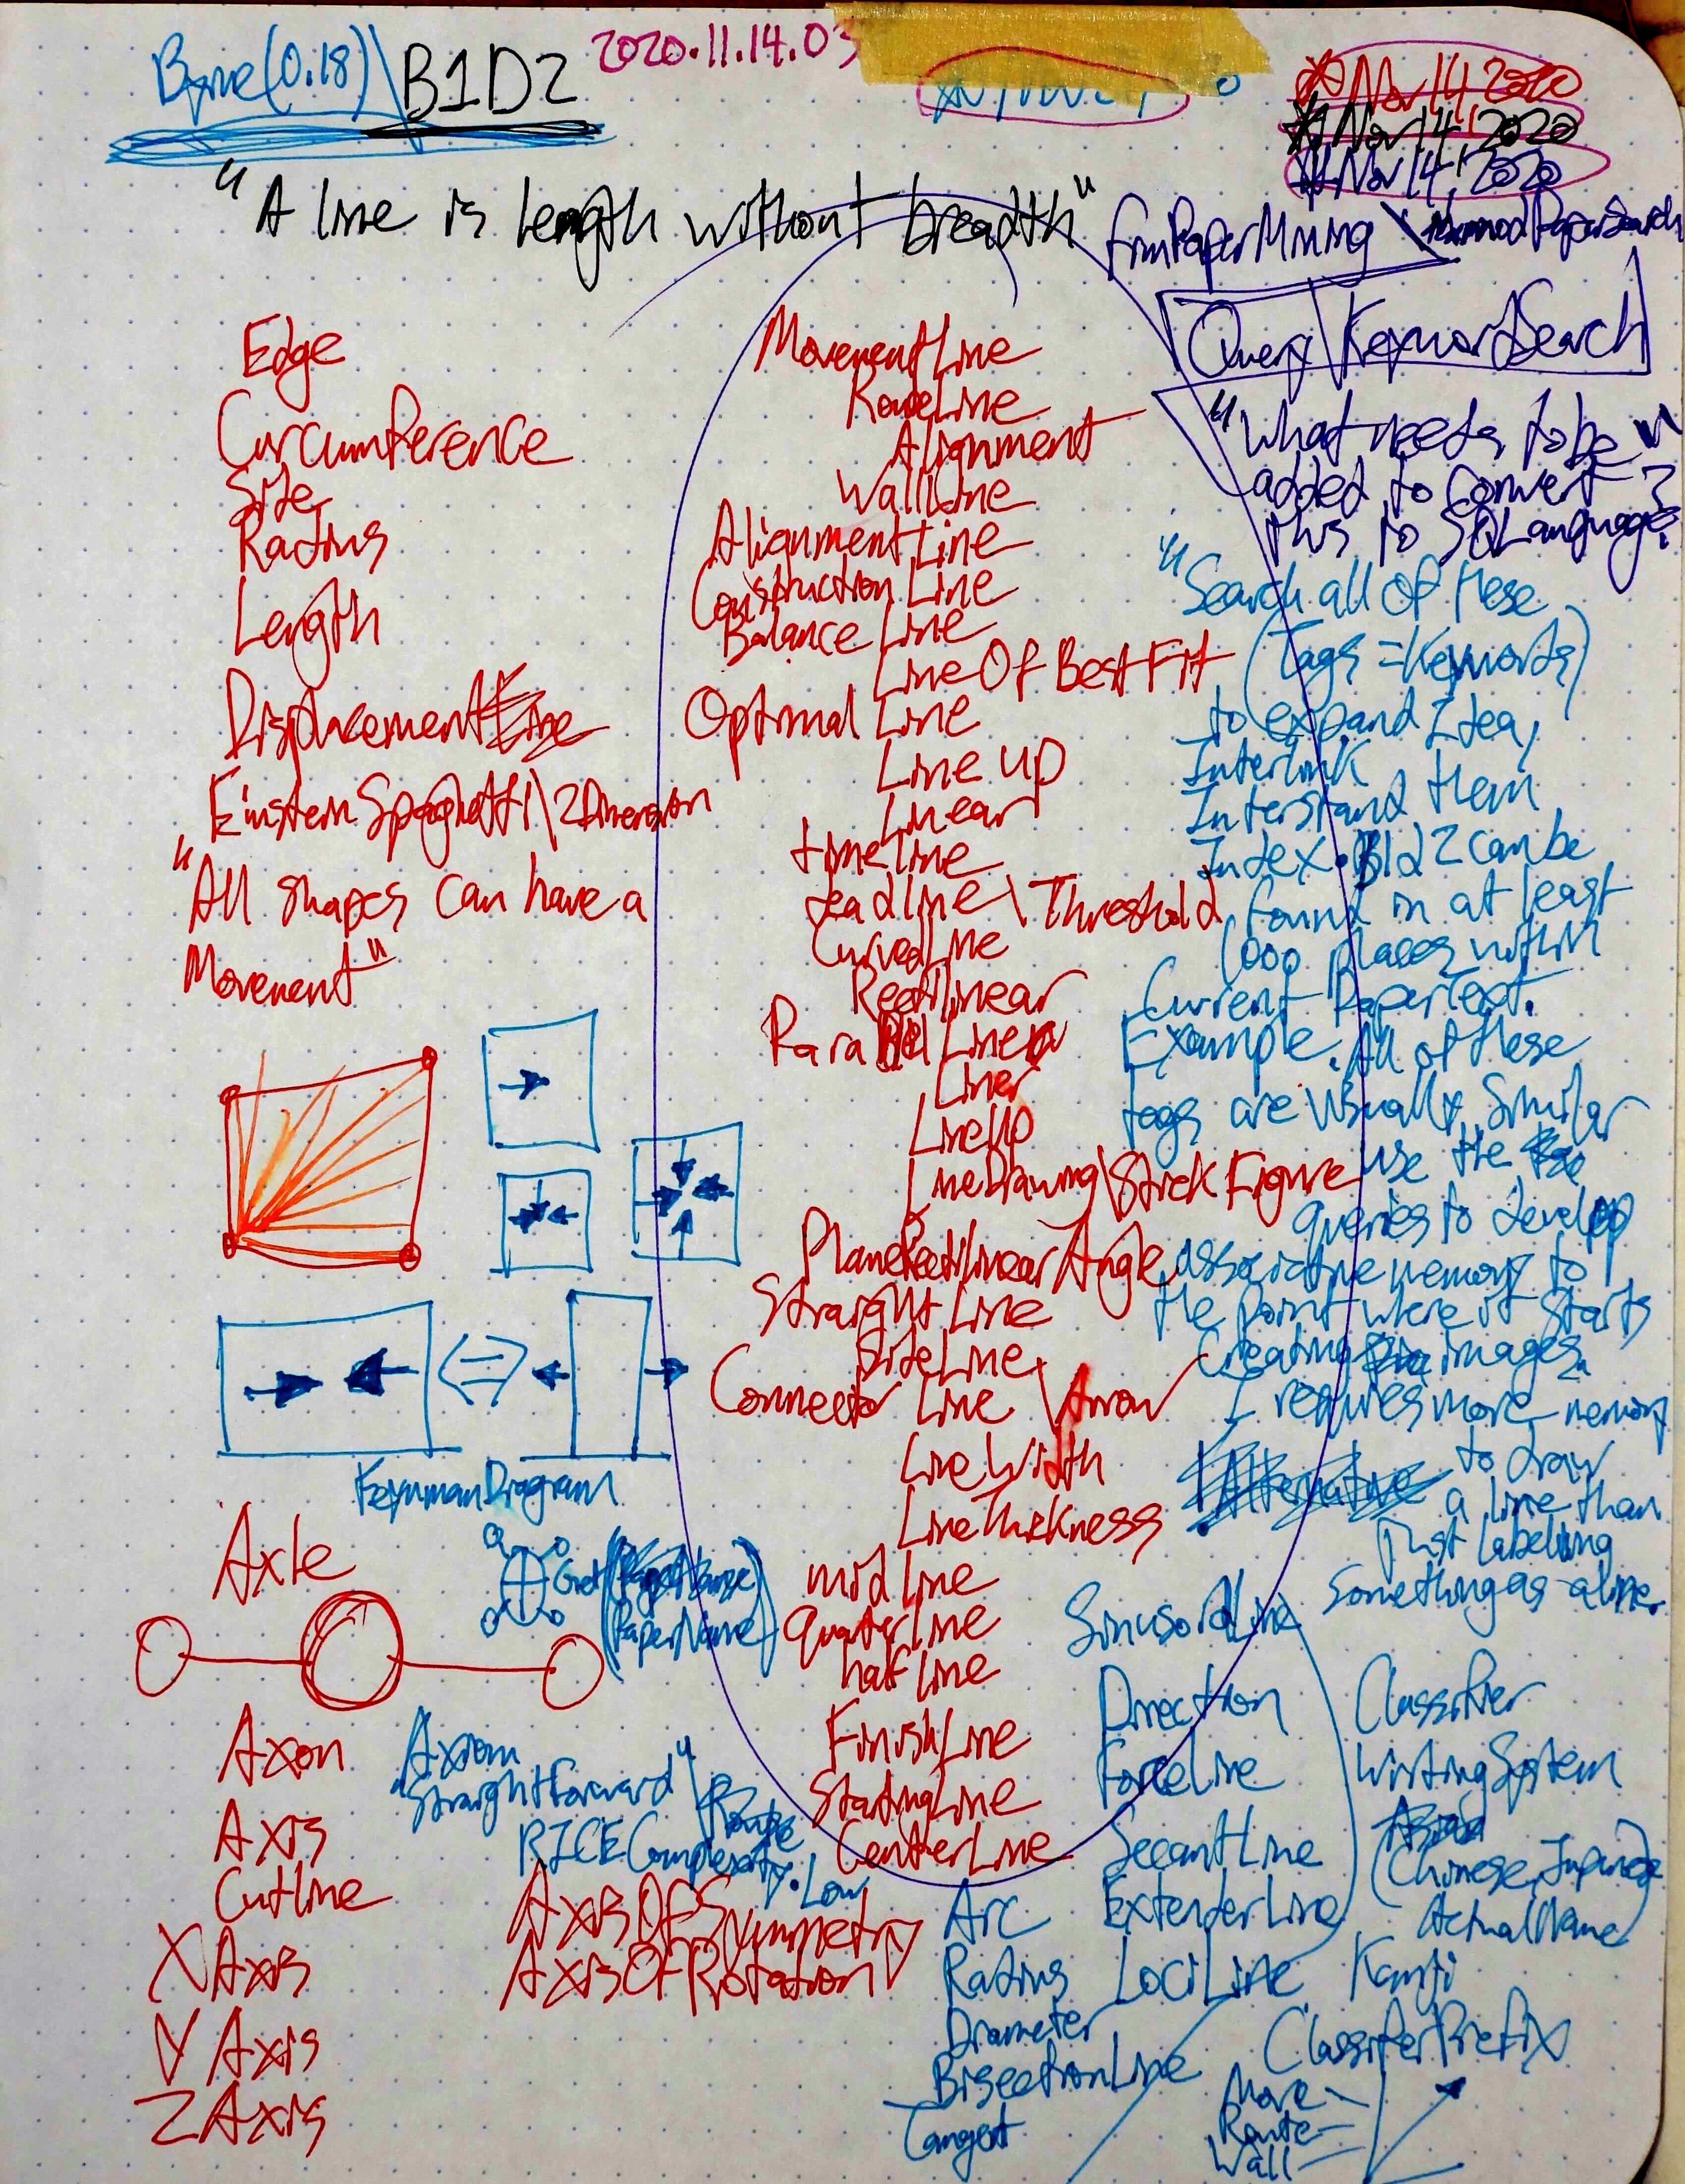 Byrne(0.18)\B1D2
2020.11.14.03
Nov 14, 2020
Nov 14, 2020
Nov 14, 2020
"A line is length without breadth"
Edge
Circumference
Site
Radius
Length
Displacement Line
EinsteinSpaghetti\2Dimension
"All shapes can have a
Movement"
FeynmanDiagram
Axle
(PaperName)
Axon
Axiom
"StraightForward"
Axis
RICEComplexity:Low
Cutline
AxisOfSymmetry
X Axis
AxisOfRotation
Y Axis
Z Axis
MovementLine
RouteLine
Alignment
WallLine
AlignmentLine
Construction Line
Balance Line
LineOfBestFit
Optimal Line
Line up
Linear
timeline
deadline\Threshold
CurvedLine
Rectilinear
Parallel Line
Liner
LineUp
LineDrawing\StickFigure
PlaneRectilinearAngle
Straight Line
SiteLine
Connector Line\Arrow
LineWidth
LineThickness
midline
quarterline
halfline
FinishLine
StartingLine
CenterLine
fromPaperMining\
Query\KeywordSearch
"What needs to be
added to convert
this to SQLanguage?"
"Search all of these
(Tags=Keywords)
to expand Idea,
Interlink
Interstand them
Index. B1d2 can be
found in at least
1000 places within
Current PaperText.
Example. All of these
tags are usually similar
use the
queries to develop
associative memory to
the point where it starts
creating images.
I requires more memory
Alternative
to draw
a line than
just labeling
something as a line.
SinusoidLine
Direction
ForceLine
SecantLine
Arc
ExtenderLine
Radius
LociLine
Diameter
BisectionLine
Tangent
Classifier
WritingSystem
(Chinese, Japanese
ActualName)
Kanji
ClassifierPrefix
Move-
Route-
Wall-